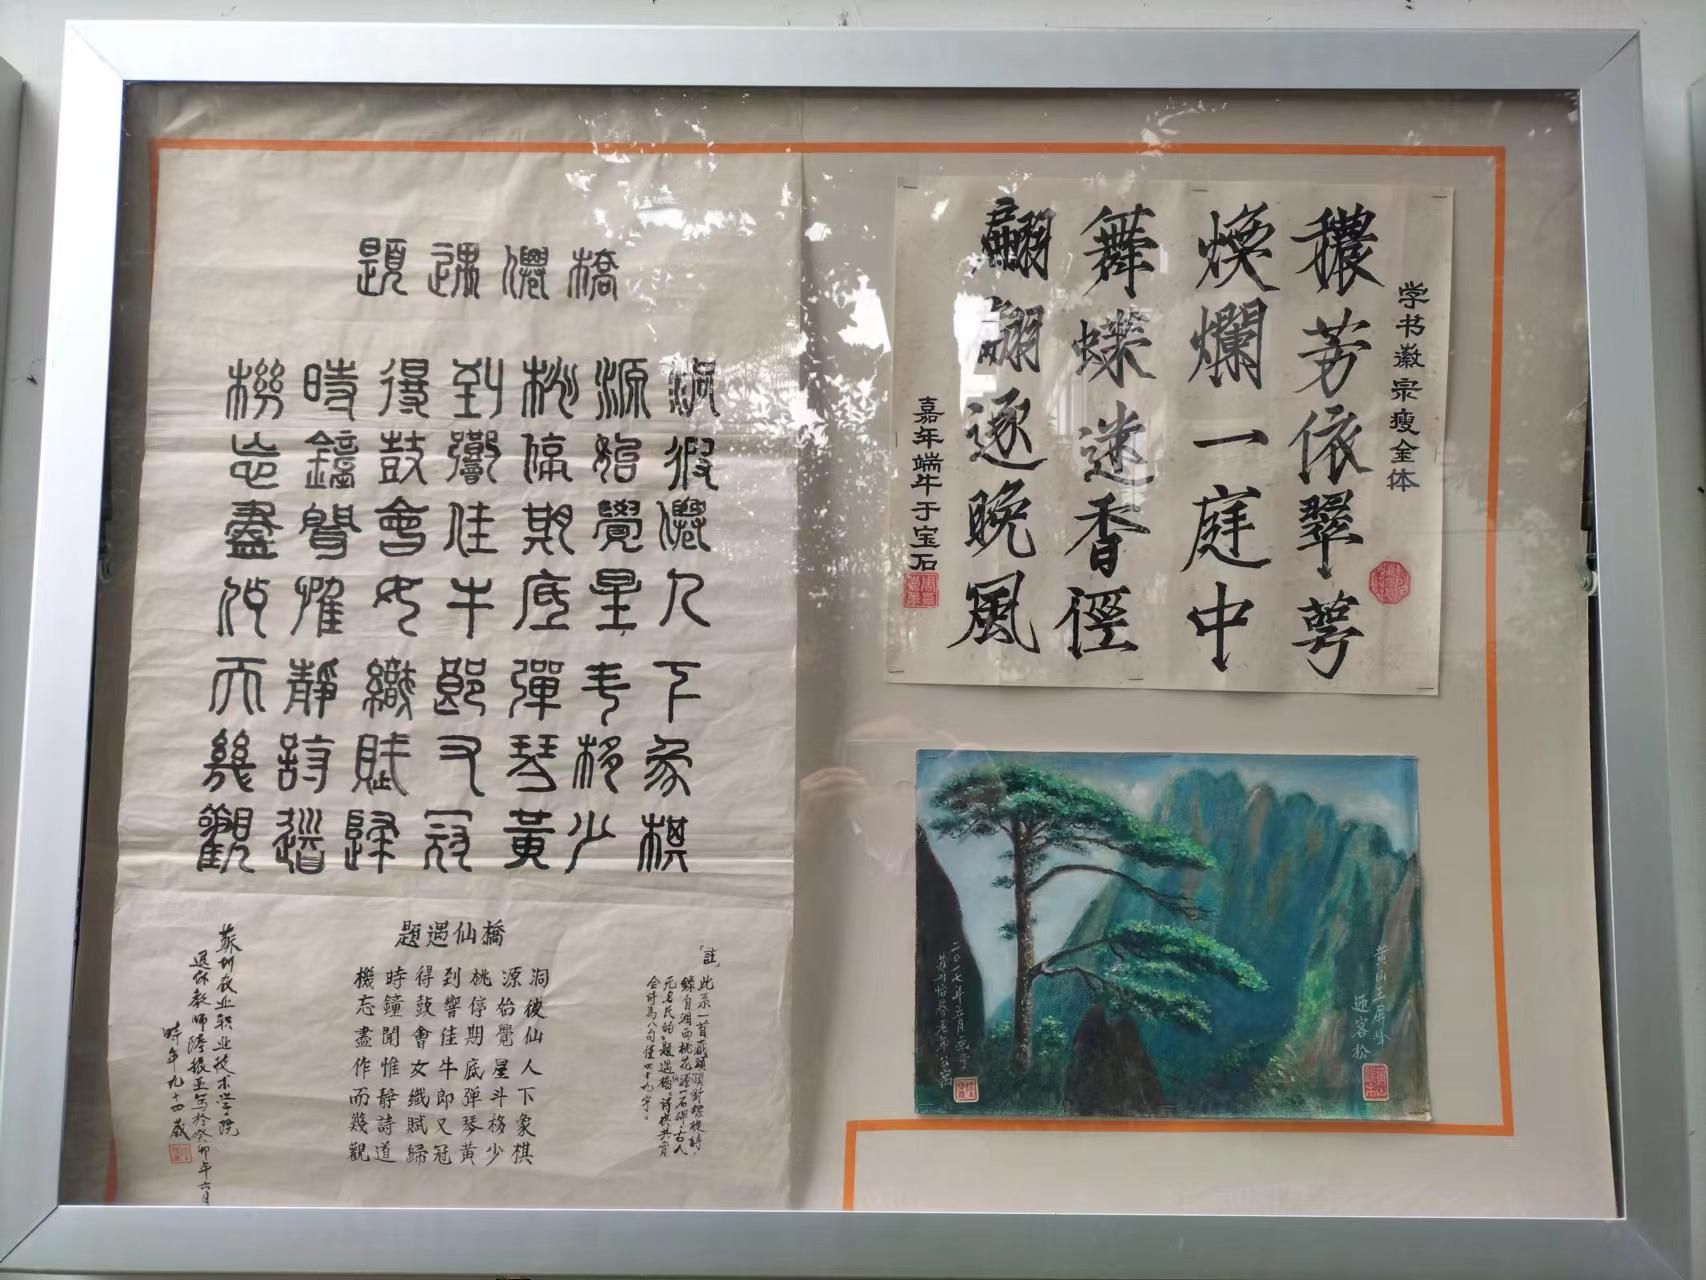 題遇僊橋
洞彼僊人下象棋
源始覺星斗移少
桃停期底彈琴黃
到響佳牛郎又冠
得鼓會女織賦歸
時鐘聞惟靜詩道
機忘盡作而幾觀
題遇仙橋
洞彼仙人下象棋
源始覺星斗移少
桃停期底彈琴黃
到響佳牛即又冠
得鼓會女織賦歸
時鐘聞惟靜詩道
機忘盡作而幾觀
「註」此系一首藏頭頂針螺旋詩,
錄自湘西桃花源一石碑:古人
僅四十九字。
蘇州农业职业技术学院
退休教师陸振玉寫於癸卯年六月
時年九十四歲
学书徽宗瘦金体
穠芳依翠萼
煥爛一庭中
舞蝶迷香徑
翩翩逐晚風
嘉年端午于宝石
黄山玉屏峰
迎客松
二〇一七年五月画于
苏州怡养老年公寓